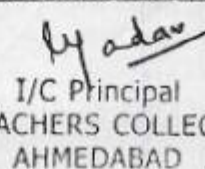 Yadav
I/C Principal
ACHERS COLLEG
AHMEDABAD